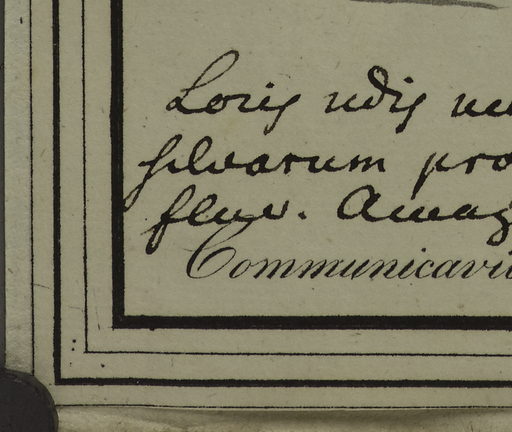 Locis udis
silvarum pro
fluv. Amaz
Communicavi